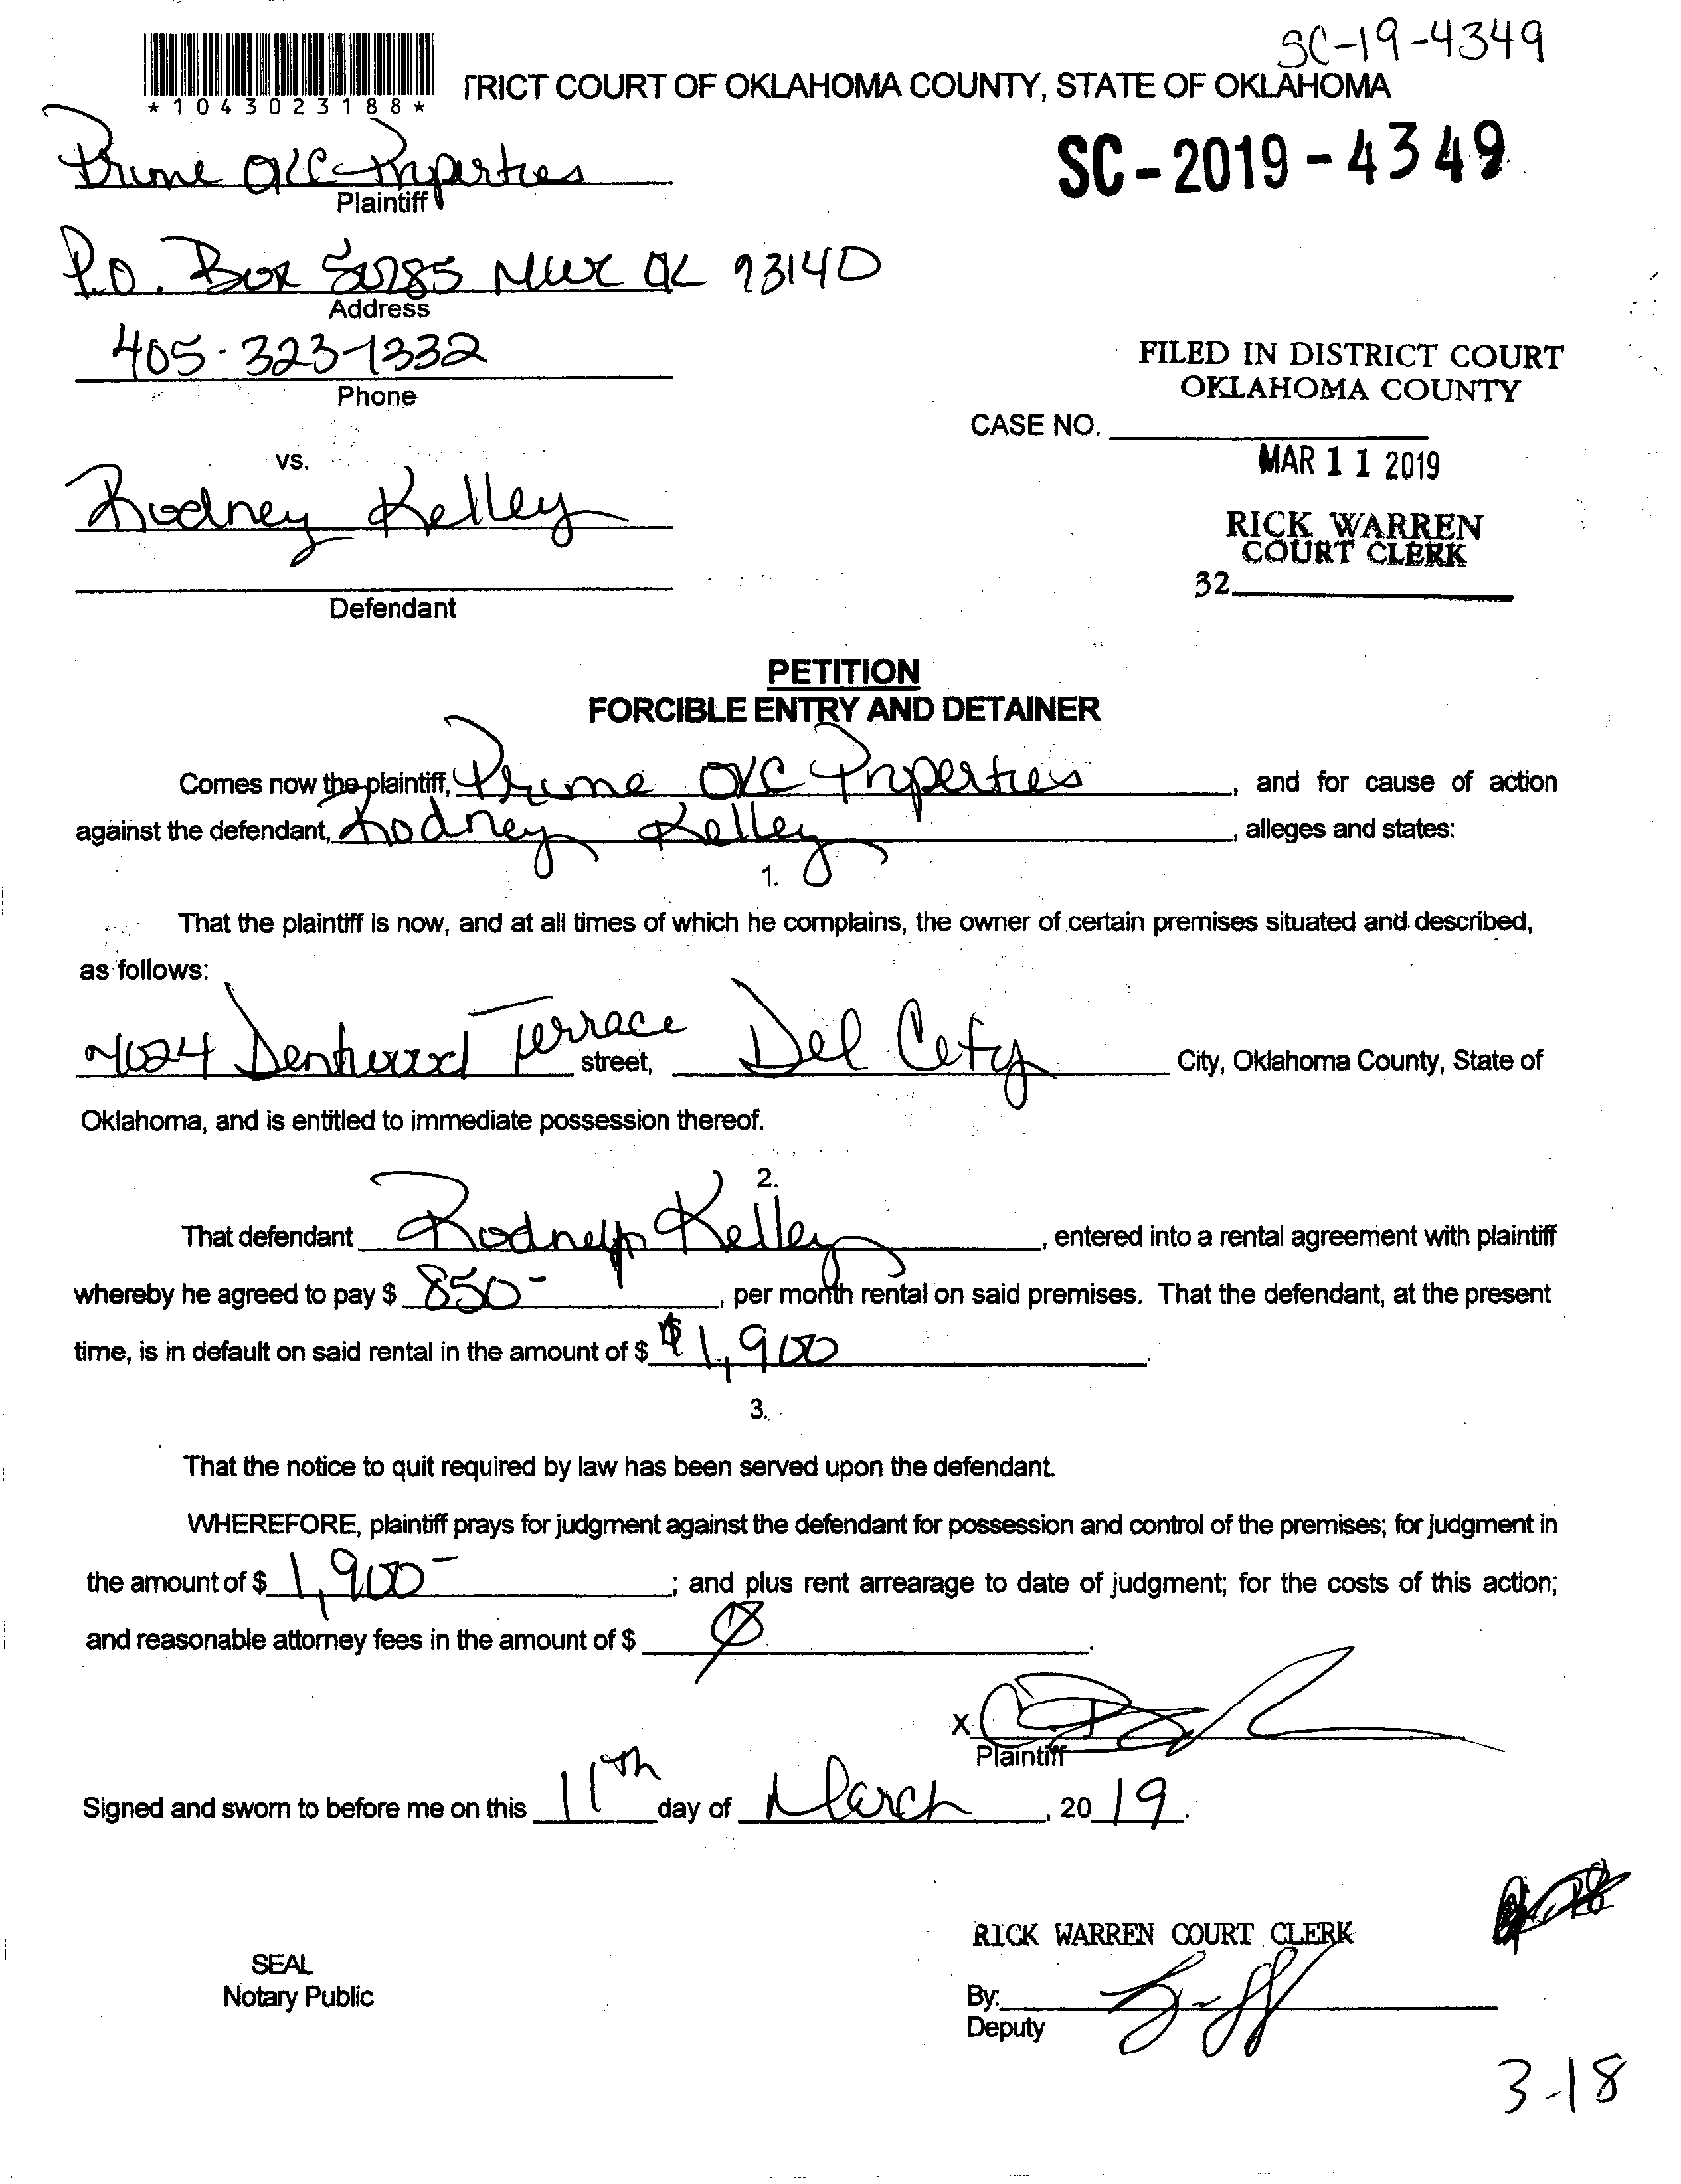 SC-19-4349
*1043023188*
TRICT COURT OF OKLAHOMA COUNTY, STATE OF OKLAHOMA
Prime OKC Properties
Plaintiff
SC-2019-4349
P.O. Box MWC OK 73140
Address
405-323-1332
Phone
FILED IN DISTRICT COURT
OKLAHOMA COUNTY
CASE NO.
MAR 11 2019
vs.
Rodney Kelley
RICK WARREN
COURT CLERK
32
Defendant
PETITION
FORCIBLE ENTRY AND DETAINER
Comes now the plaintiff, Prime OKC Properties, and for cause of action
against the defendant, Rodney Kelley, alleges and states:
1.
That the plaintiff is now, and at all times of which he complains, the owner of certain premises situated and described,
as follows:
Terrace street, Del City City, Oklahoma County, State of
Oklahoma, and is entitled to immediate possession thereof.
2.
That defendant Rodney Kelley, entered into a rental agreement with plaintiff
whereby he agreed to pay $ 850-, per month rental on said premises. That the defendant, at the present
time, is in default on said rental in the amount of $ $1,900.
3.
That the notice to quit required by law has been served upon the defendant.
WHEREFORE, plaintiff prays for judgment against the defendant for possession and control of the premises; for judgment in
the amount of $ 1,900-; and plus rent arrearage to date of judgment; for the costs of this action;
and reasonable attorney fees in the amount of $
X
Plaintiff
Signed and sworn to before me on this 11th day of March, 20 19.
RICK WARREN COURT CLERK
SEAL
Notary Public
By:
Deputy
3-18